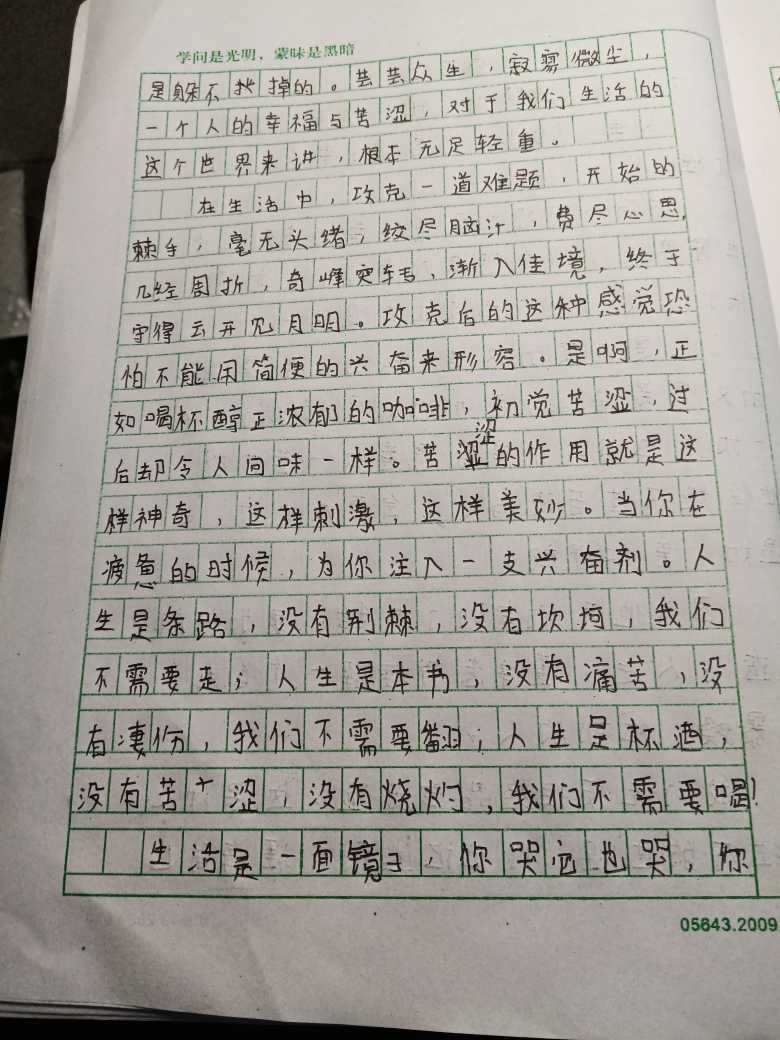 学问是光明，蒙昧是黑暗
是躲不找掉的。芸芸众生，寂寥微尘，
一个人的幸福与苦涩，对于我们生活的
这个世界来讲，根本无足轻重。
在生活中，攻克一道难题，开始的
棘手，毫无头绪，绞尽脑汁，费尽心思，
几经周折，奇峰突转，渐入佳境，终于
守得云开见月明。攻克后的这种感觉恐
怕不能用简便的兴奋来形容。是啊，正
如喝杯醇正浓郁的咖啡，初觉苦涩，过
后却令人回味一样。苦涩的作用就是这
样神奇，这样刺激，这样美妙。当你在
疲惫的时候，为你注入一支兴奋剂。人
生是条路，没有荆棘，没有坎坷，我们
不需要走；人生是本书，没有痛苦，没
有凄伤，我们不需要翻；人生是杯酒，
没有苦涩，没有烧灼，我们不需要喝！
生活是一面镜子，你哭它也哭，你
05643.2009